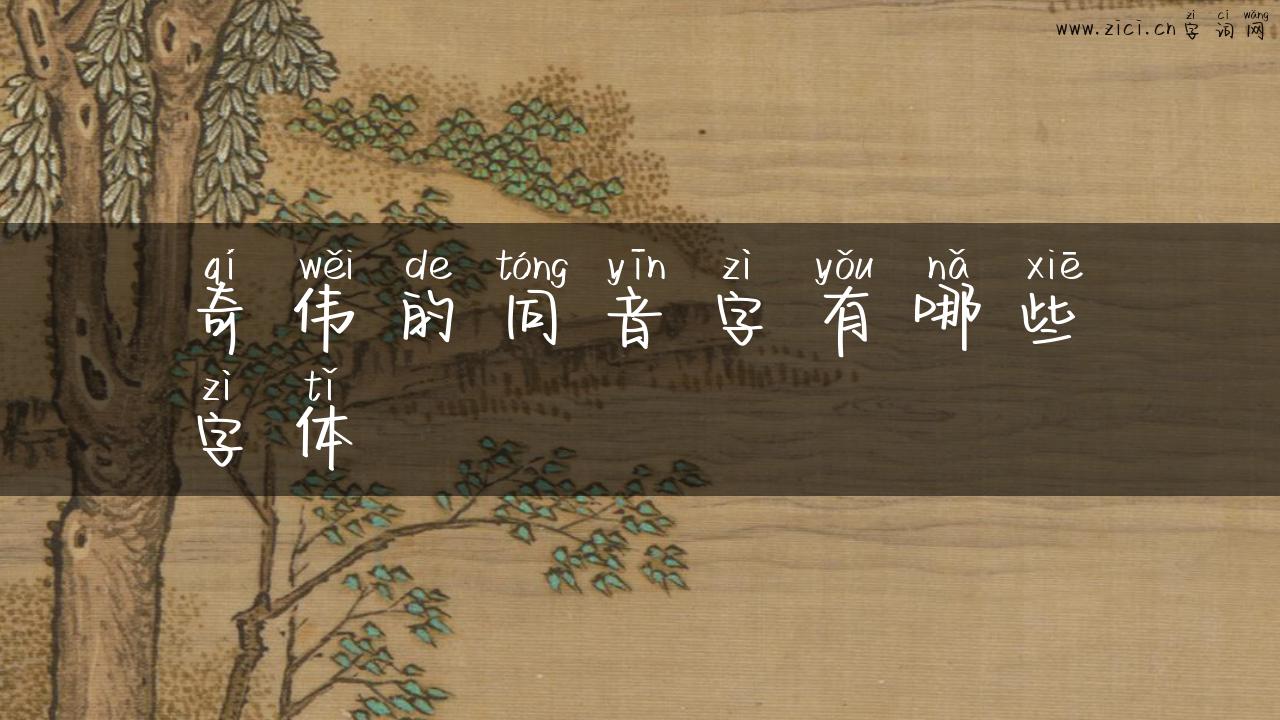 zì cí wǎng
www.zici.cn 字词网
qí wěi de tóng yīn zì yǒu nǎ xiē
奇伟的同音字有哪些
zì tǐ
字体